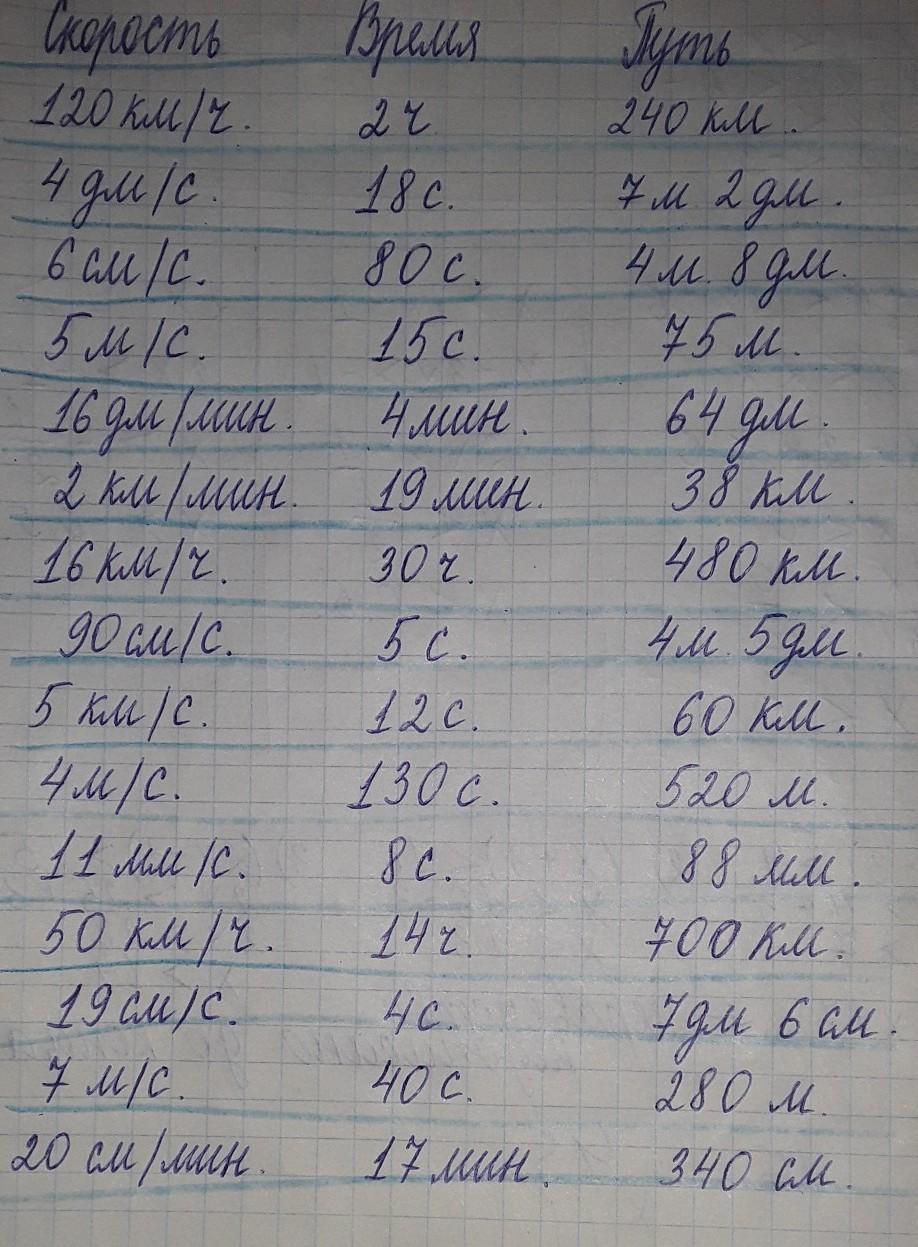 Скорость Время Путь
120 км/ч. 2 ч 240 км.
4 дм/с. 18 с. 7 м 2 дм.
6 см/с. 80 с. 4 м. 8 дм.
5 м/с. 15 с. 75 м.
16 дм/мин. 4 мин. 64 дм.
2 км/мин. 19 мин. 38 км.
16 км/ч. 30 ч. 480 км.
90 см/с. 5 с. 4 м. 5 дм.
5 км/с. 12 с. 60 км.
4 м/с. 130 с. 520 м.
11 мм/с. 8 с. 88 мм.
50 км/ч. 14 ч. 700 км.
19 см/с. 4 с. 7 дм 6 см.
7 м/с. 40 с. 280 м.
20 см/мин. 17 мин. 340 см.